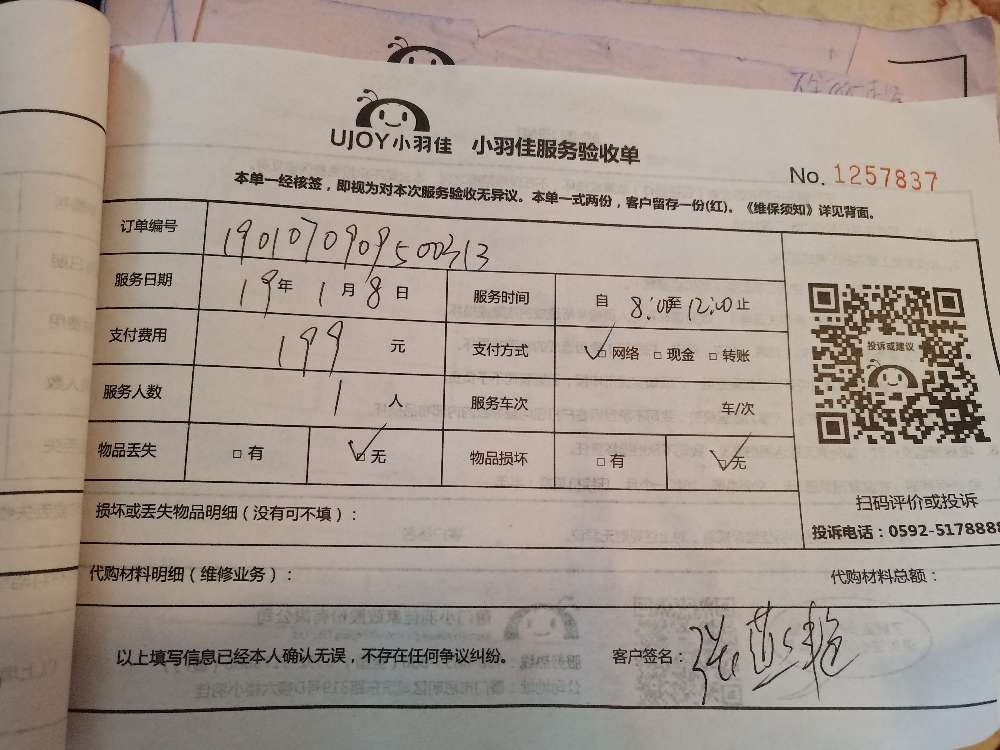 UJOY小羽佳 小羽佳服务验收单
No. 1257837
本单一经核签，即视为对本次服务验收无异议。本单一式两份，客户留存一份(红)。《维保须知》详见背面。
订单编号
服务日期 19年 1月8日 服务时间 自 8:00至12:00止
支付费用 199 元 支付方式 ☑网络 □现金 □转账
服务人数 1 人 服务车次 车/次
物品丢失 □有 ☑无 物品损坏 □有 ☑无
投诉或建议
扫码评价或投诉
投诉电话：0592-5178888
损坏或丢失物品明细（没有可不填）：
代购材料明细（维修业务）： 代购材料总额：
以上填写信息已经本人确认无误，不存在任何争议纠纷。 客户签名：